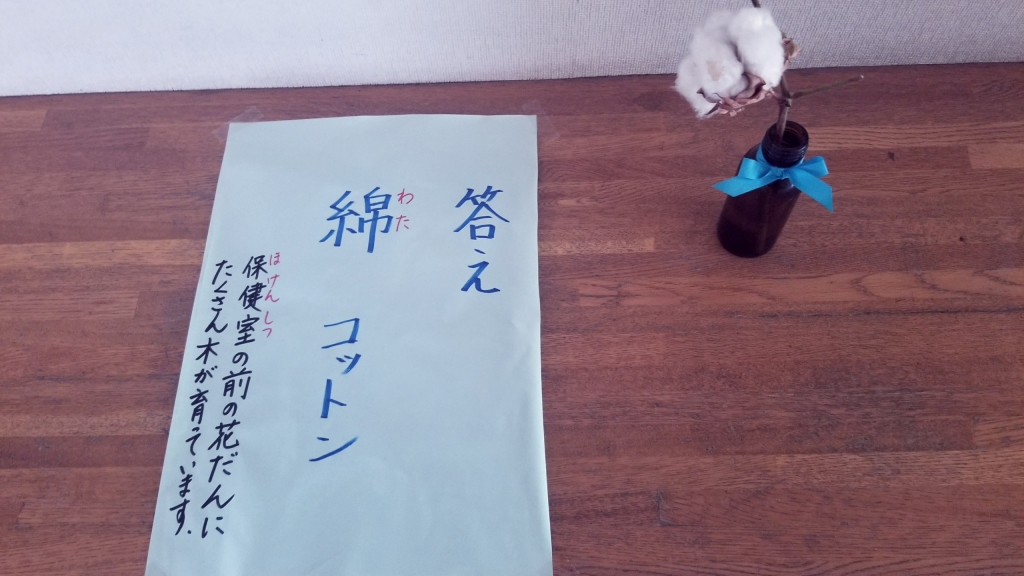 答え
わた
綿 コットン
ほけんしつ
保健室の前の花だんに
たくさん木が育っています.